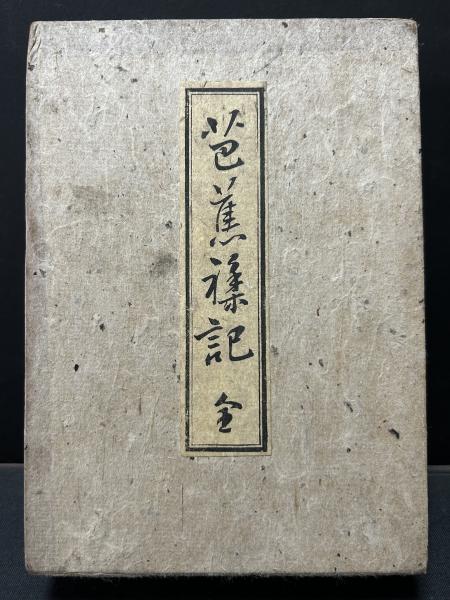 芭蕉襍記 全